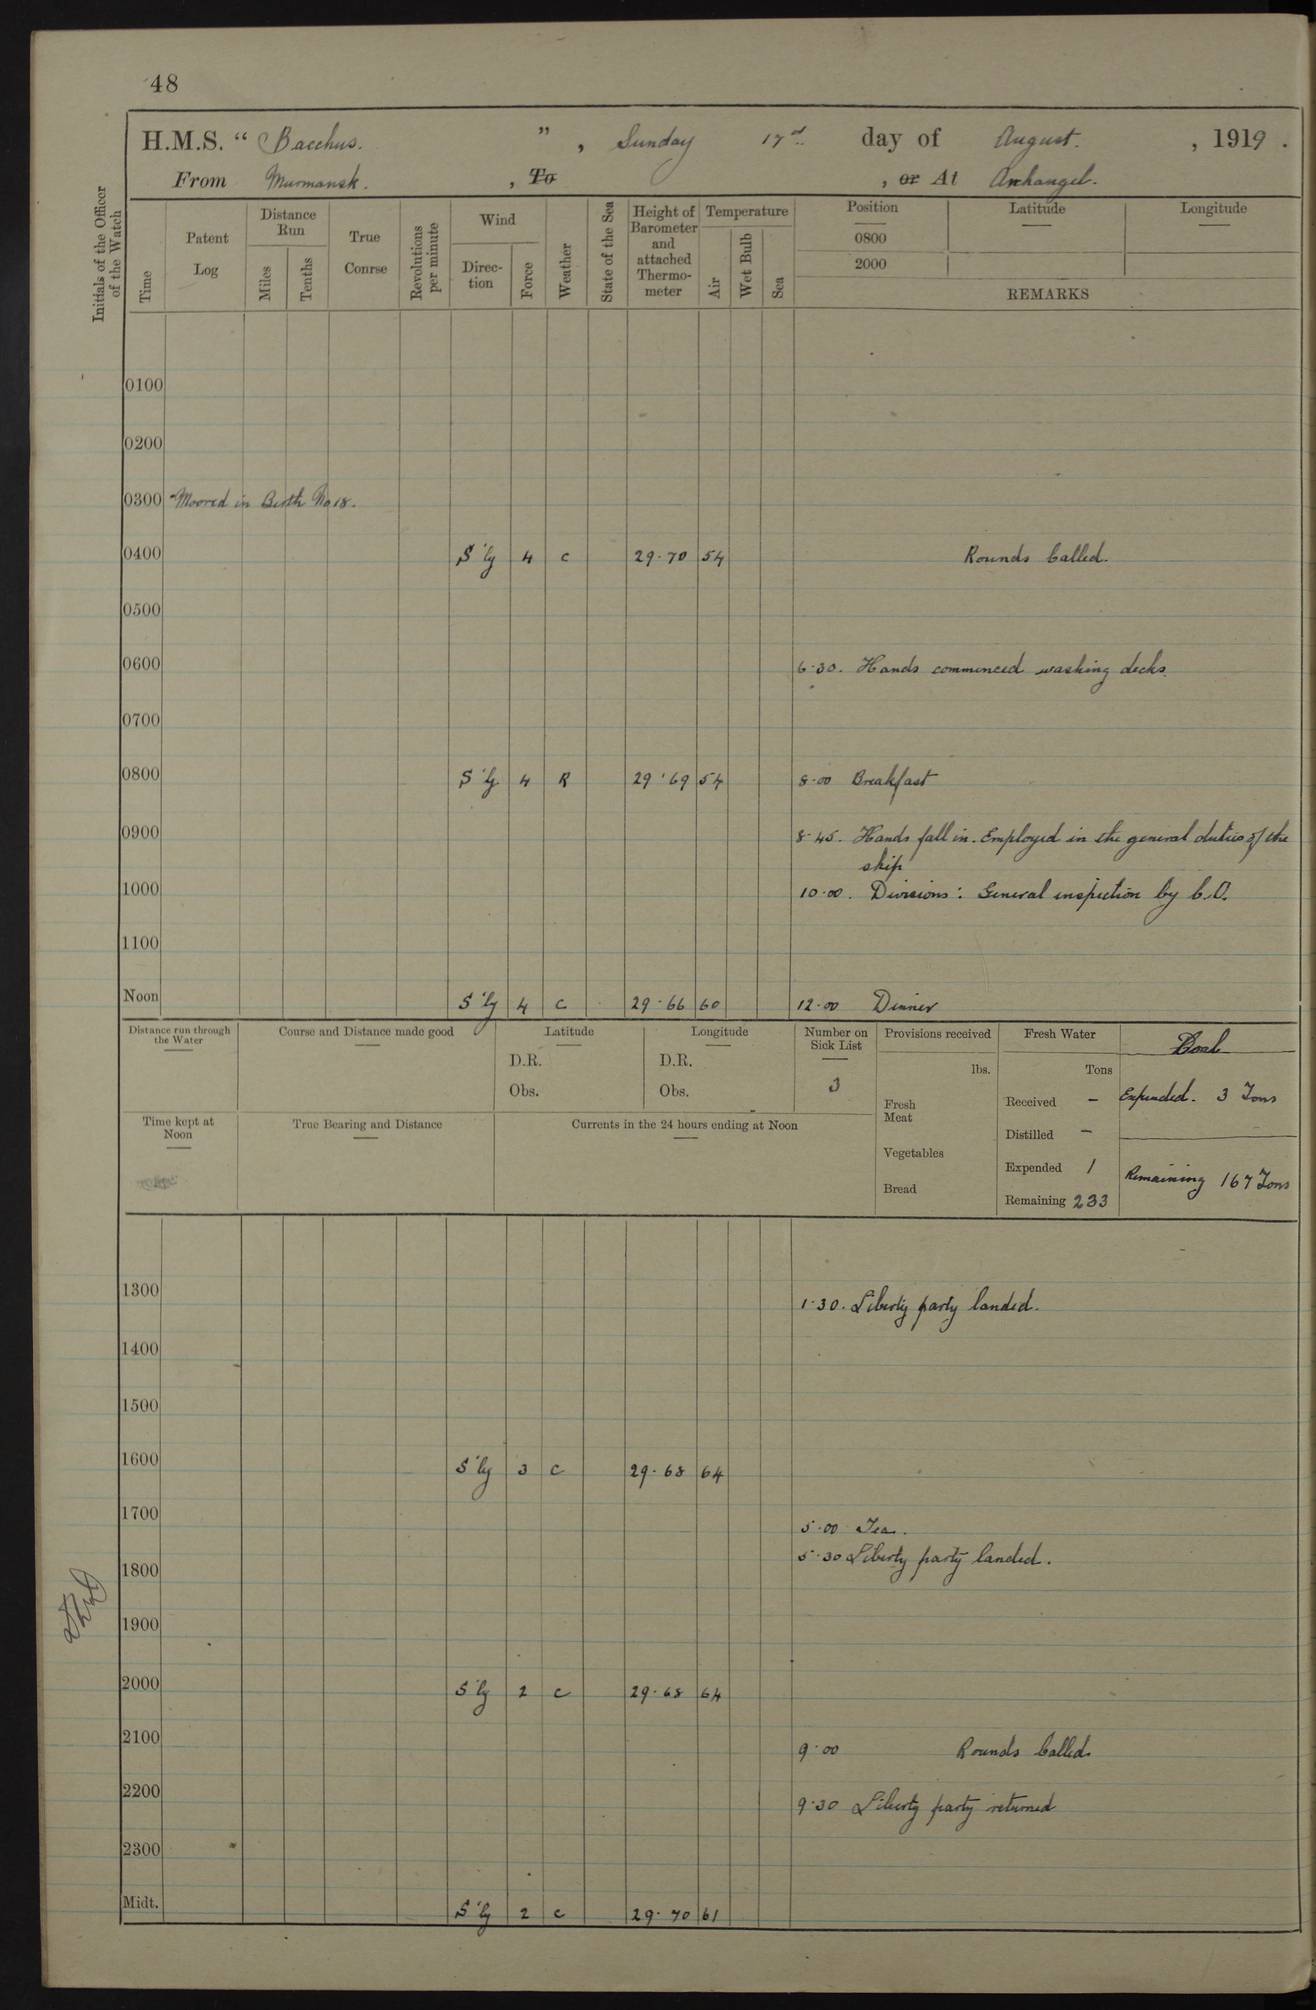 48
H.M.S. “ Bacchus. ” , Sunday 17th day of August. , 1919 .
From Murmansk. , To , or At Archangel.
Initials of the Officer of the Watch
Time
Patent Log
Distance Run
Miles
Tenths
True Course
Revolutions per minute
Wind
Direc-tion
Force
Weather
State of the Sea
Height of Barometer and attached Thermo-meter
Temperature
Air
Wet Bulb
Sea
Position Latitude Longitude
0800
2000
REMARKS
0100
0200
0300 Moored in Berth No 18.
0400 S'ly 4 c 29.70 54 Rounds Called.
0500
0600
6.30. Hands commenced washing decks.
0700
0800 S'ly 4 R 29.69 54 8.00 Breakfast
0900 8.45. Hands fall in. Employed in the general duties of the
ship
1000 10.00. Divisions: General inspection by C.O.
1100
Noon S'ly 4 c 29.66 60 12.00 Dinner
Distance run through the Water
Course and Distance made good
Latitude
D.R.
Obs.
Longitude
D.R.
Obs.
Number on Sick List
3
Provisions received
lbs.
Fresh Meat
Vegetables
Bread
Fresh Water
Tons
Received –
Distilled –
Expended 1
Remaining 233
Coal
Expended. 3 Tons
Remaining 167 Tons
Time kept at Noon
True Bearing and Distance
Currents in the 24 hours ending at Noon
1300
1.30. Liberty party landed.
1400
1500
1600 S'ly 3 c 29.68 64
1700
5.00 Tea.
5.30 Liberty party landed.
1800
1900
2000 S'ly 2 c 29.68 64
2100
9.00 Rounds Called
2200
9.30 Liberty party returned
2300
Midt. S'ly 2 c 29.70 61